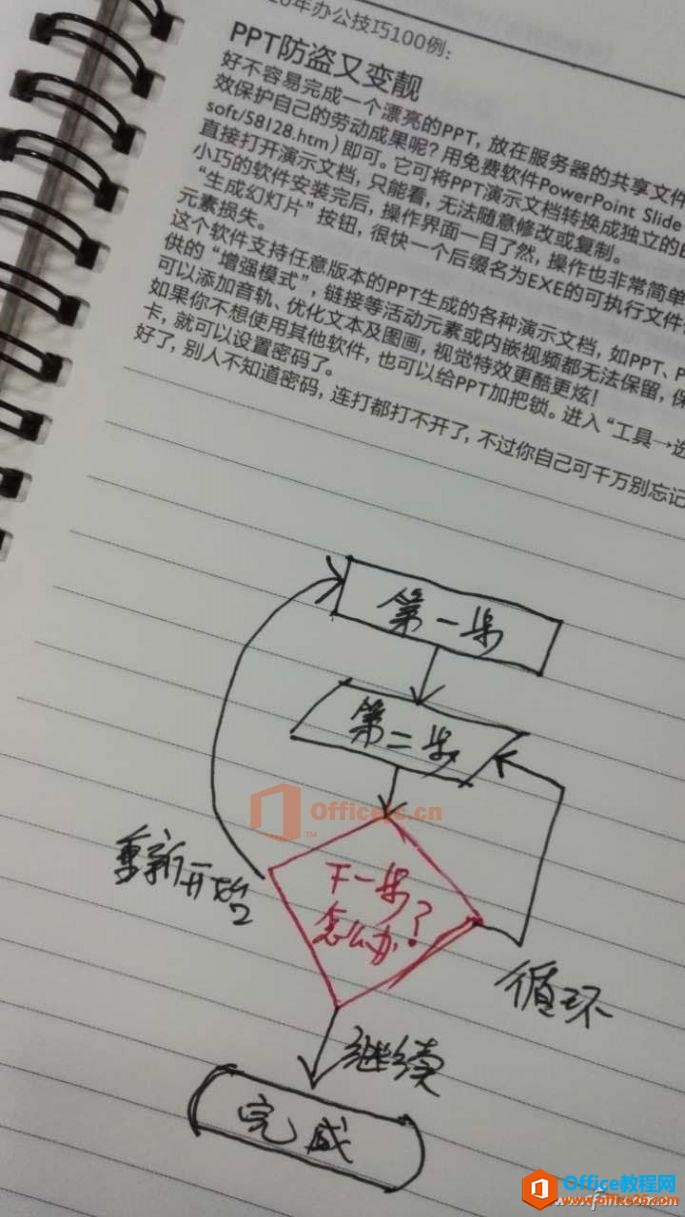 10年办公技巧100例:
PPT防盗又变靓
好不容易完成一个漂亮的PPT, 放在服务器的共享文件
效保护自己的劳动成果呢? 用免费软件PowerPoint Slide
soft/58128.htm) 即可。它可将PPT演示文档转换成独立的E
直接打开演示文档, 只能看, 无法随意修改或复制。
小巧的软件安装完后, 操作界面一目了然, 操作也非常简单
“生成幻灯片” 按钮, 很快一个后缀名为EXE的可执行文件
元素损失。
这个软件支持任意版本的PPT生成的各种演示文档, 如PPT、P
供的 “增强模式”, 链接等活动元素或内嵌视频都无法保留, 保
可以添加音轨、优化文本及图画, 视觉特效更酷更炫!
如果你不想使用其他软件, 也可以给PPT加把锁。进入 “工具→选
卡, 就可以设置密码了。
好了, 别人不知道密码, 连打都打不开了, 不过你自己可千万别忘记
第一步
第二步
OfficeTc.cn
TM
下一步
怎么办?
重新开始
循环
继续
完成
Office教程网